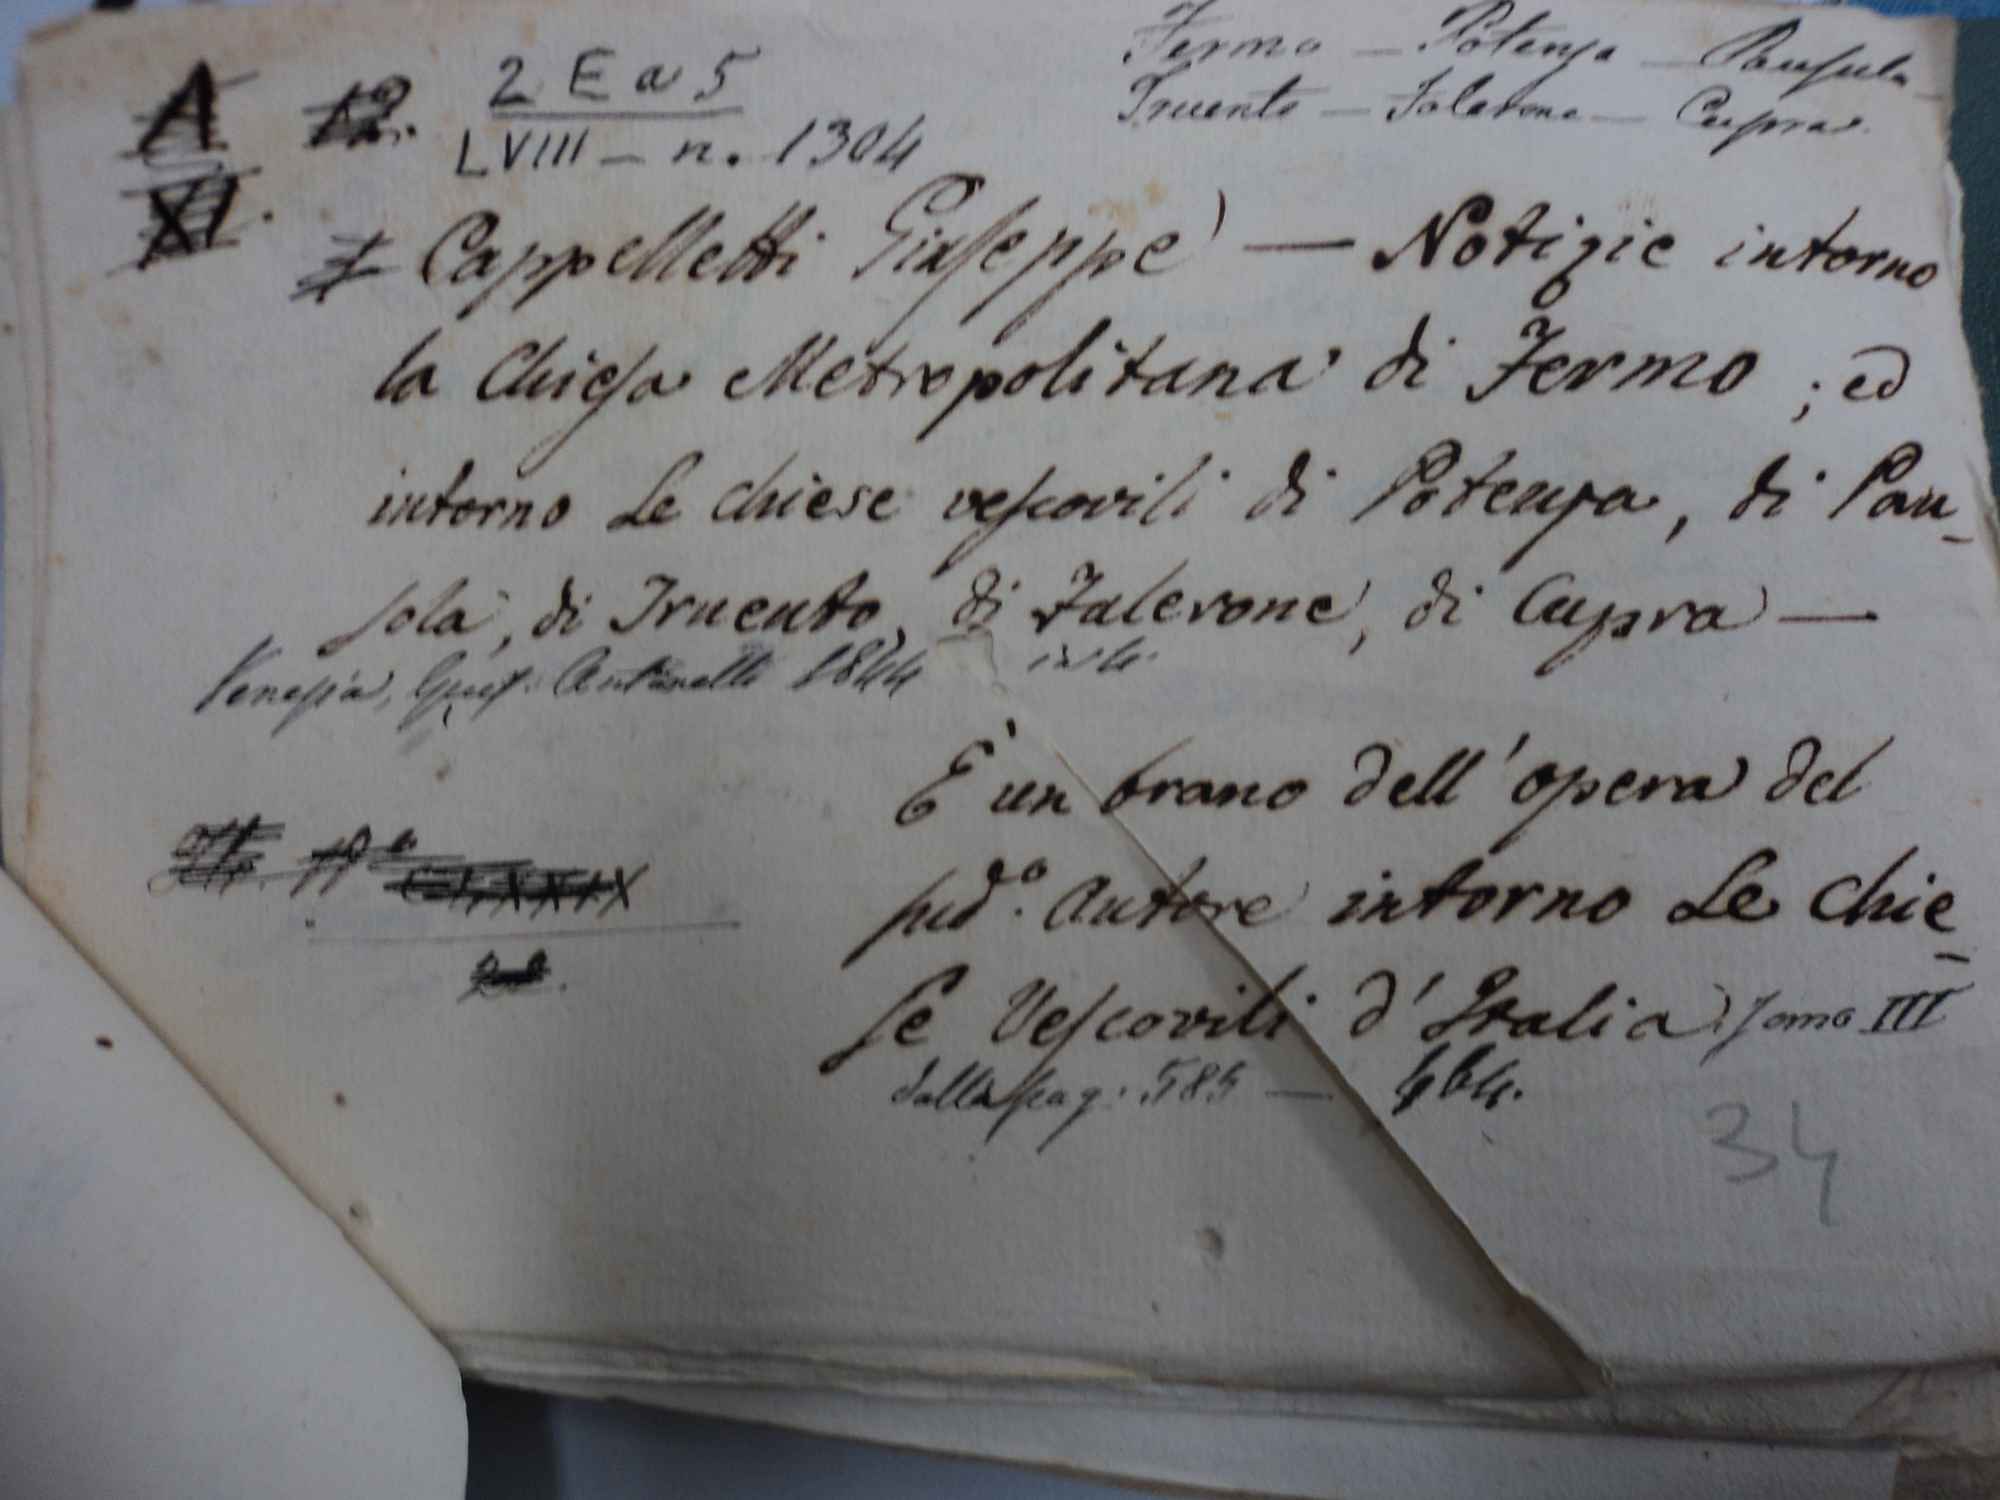 Fermo — Potenza — Pausula
Truento — Falerone — Cupra
A 12. 2 E a 5
XI. LVIII — n. 1304
Cappelletti Giuseppe — Notizie intorno
la Chiesa Metropolitana di Fermo ; ed
intorno le chiese vescovili di Potenza, di Pau-
sola, di Truento, di Falerone, di Cupra —
Venezia, Gius. Antonelli 1844 in 4.
È un brano dell'opera del
sud.o Autore intorno le Chie-
se Vescovili d'Italia. Tomo III
dalla pag. 585 — 664.
34